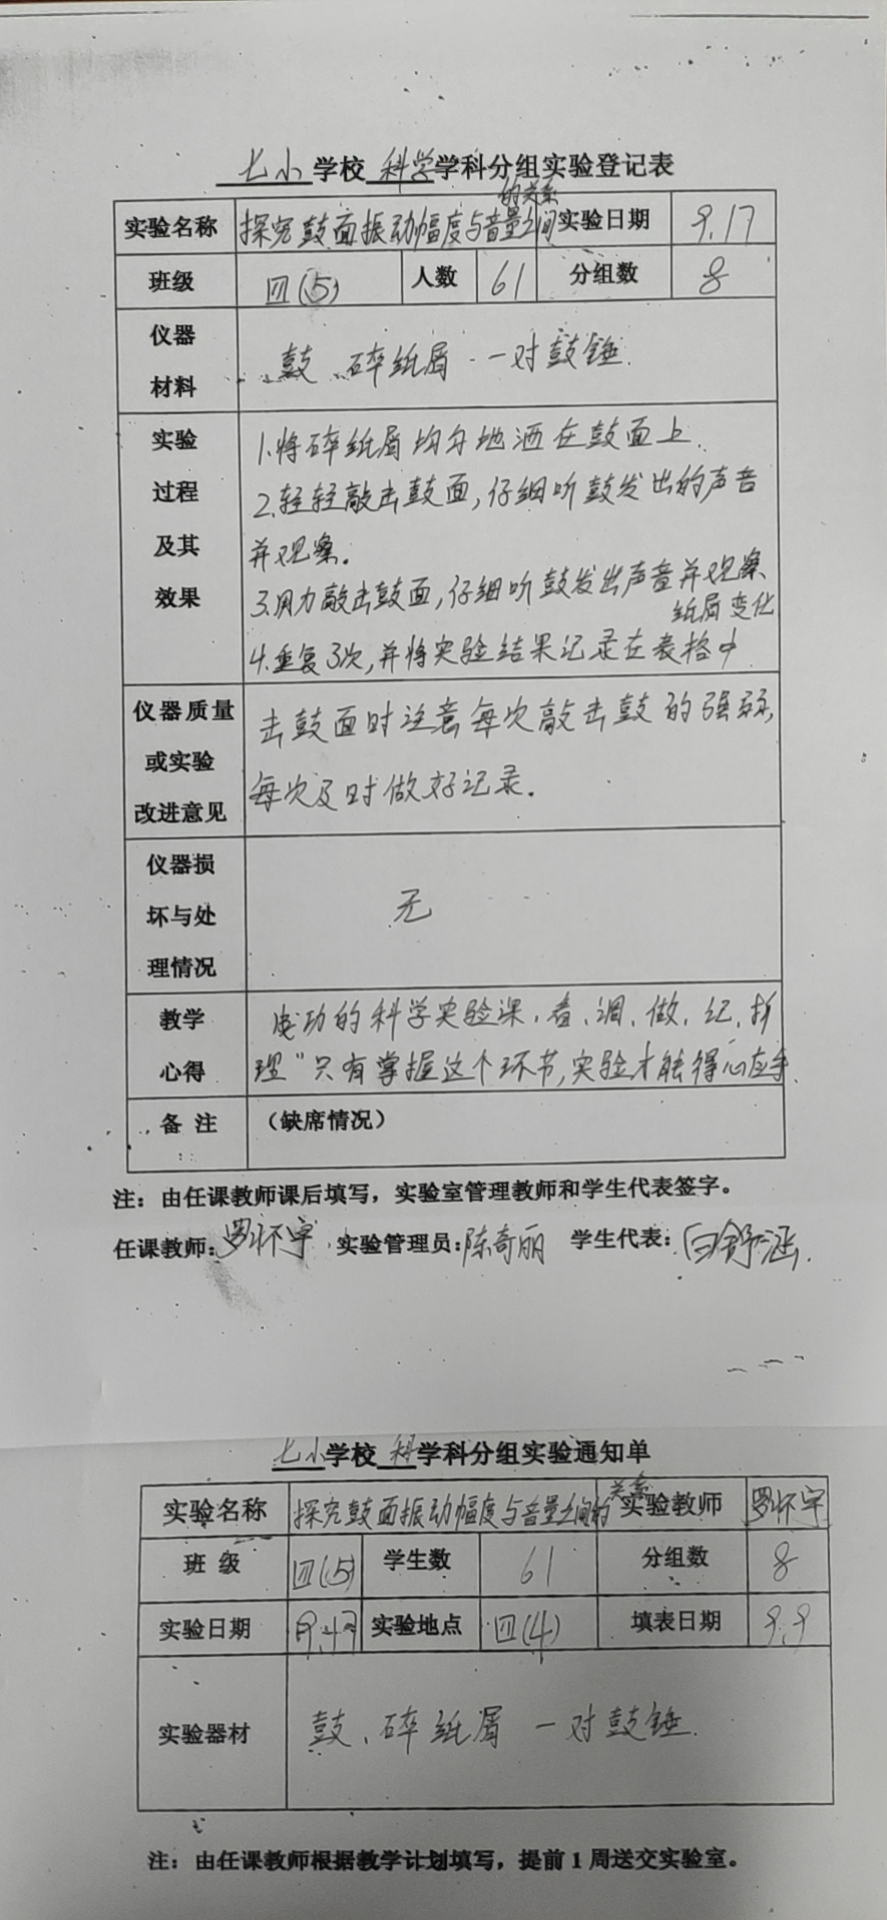 七小学校 科学学科分组实验登记表
实验名称 探究鼓面振动幅度与音量之间的关系 实验日期 9.17
班级 四(5) 人数 61 分组数 8
仪器材料 鼓、碎纸屑 一对鼓锤
实验过程及其效果
1.将碎纸屑均匀地洒在鼓面上.
2.轻轻敲击鼓面,仔细听鼓发出的声音
并观察.
3.用力敲击鼓面,仔细听鼓发出声音并观察
纸屑变化
4.重复3次,并将实验结果记录在表格中
仪器质量或实验改进意见
击鼓面时注意每次敲击鼓的强弱,
每次及时做好记录.
仪器损坏与处理情况 无
教学心得
成功的科学实验课,看、调、做、纪、析
理"只有掌握这个环节,实验才能得心应手.
备 注 (缺席情况)
注：由任课教师课后填写，实验室管理教师和学生代表签字。
任课教师:罗怀宇 实验管理员:陈奇丽 学生代表:白舒涵
七小学校 科学科分组实验通知单
实验名称 探究鼓面振动幅度与音量之间的关系 实验教师 罗怀宇
班 级 四(5) 学生数 61 分组数 8
实验日期 实验地点 四(4) 填表日期 9.9
实验器材 鼓、碎纸屑 一对鼓锤.
注：由任课教师根据教学计划填写，提前1周送交实验室。